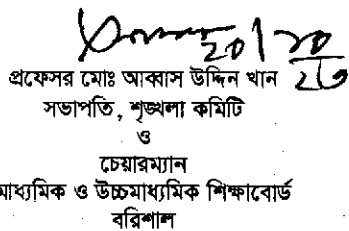 প্রফেসর মোঃ আব্বাস উদ্দিন খান
সভাপতি, শৃঙ্খলা কমিটি
ও
চেয়ারম্যান
মাধ্যমিক ও উচ্চমাধ্যমিক শিক্ষাবোর্ড
বরিশাল